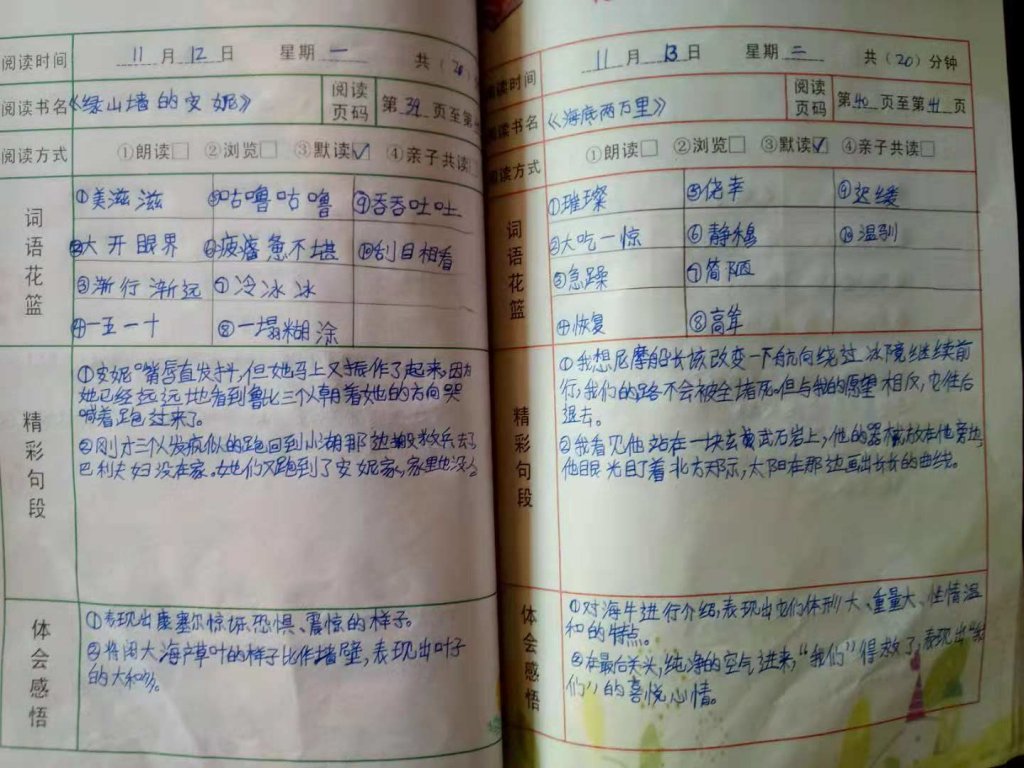 阅读时间 11月12日 星期一 共(20)
阅读书名 《绿山墙的安妮》 阅读页码 第39页至第
阅读方式 ①朗读□ ②浏览□ ③默读☑ ④亲子共读□
词语花篮
①美滋滋 ⑤咕噜咕噜 ⑨吞吞吐吐
②大开眼界 ⑥疲惫不堪 ⑩刮目相看
③渐行渐远 ⑦冷冰冰
④一五一十 ⑧一塌糊涂
精彩句段
①安妮嘴唇直发抖,但她马上又振作了起来,因为
她已经远远地看到鲁比三个朝着她的方向哭
喊着跑过来了。
②刚才三个发疯似的跑回到小湖那边搬救兵去了
巴利夫妇没在家。她们又跑到了安妮家,家里也没
体会感悟
①表现出 惊讶、恐惧、震惊的样子。
②将阔大海草叶的样子比作墙壁,表现出叶子
的大和
阅读时间 11月13日 星期二 共(20)分钟
阅读书名 《海底两万里》 阅读页码 第40页至第41页
阅读方式 ①朗读□ ②浏览□ ③默读☑ ④亲子共读□
词语花篮
①璀璨 ⑤侥幸 ⑨迟缓
②大吃一惊 ⑥静穆 ⑩温驯
③急躁 ⑦简陋
④恢复 ⑧高耸
精彩句段
①我想尼摩船长该改变一下航向绕过冰障继续前
行,我们的路不会被全堵死。但与我的愿望相反,它往后
退去。
②我看见他站在一块玄武岩石岩上,他的器械放在他旁边,
他眼光盯着北方 ,太阳在那边画出长长的曲线。
体会感悟
①对海牛进行介绍,表现出它们体形大、重量大、性情温
和的特点。
②在最后关头,纯净的空气进来,“我们”得救了,表现出“我
们”的喜悦心情。